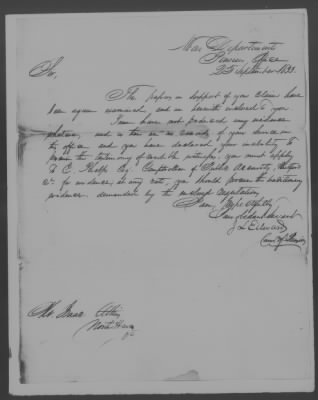 War Department
Pension Office
25 September 1833.
Sir,
The papers in support of your claim have
been again examined, and are herewith inclosed to you
You have not produced any evidence
whatever, and as there is no record of your service in
this office and you have declared your inability to
procure the testimony of credible witnesses, you must apply
to E. Phelps Esq. Comptroller of Public Accounts, Hartford
Ct. for evidence, at any rate, you should procure the
evidence demanded by the enclosed regulation,
I am, respectfully
Your obedient servant
J L Edwards
Comr of Pensions
Isaac
North Haven